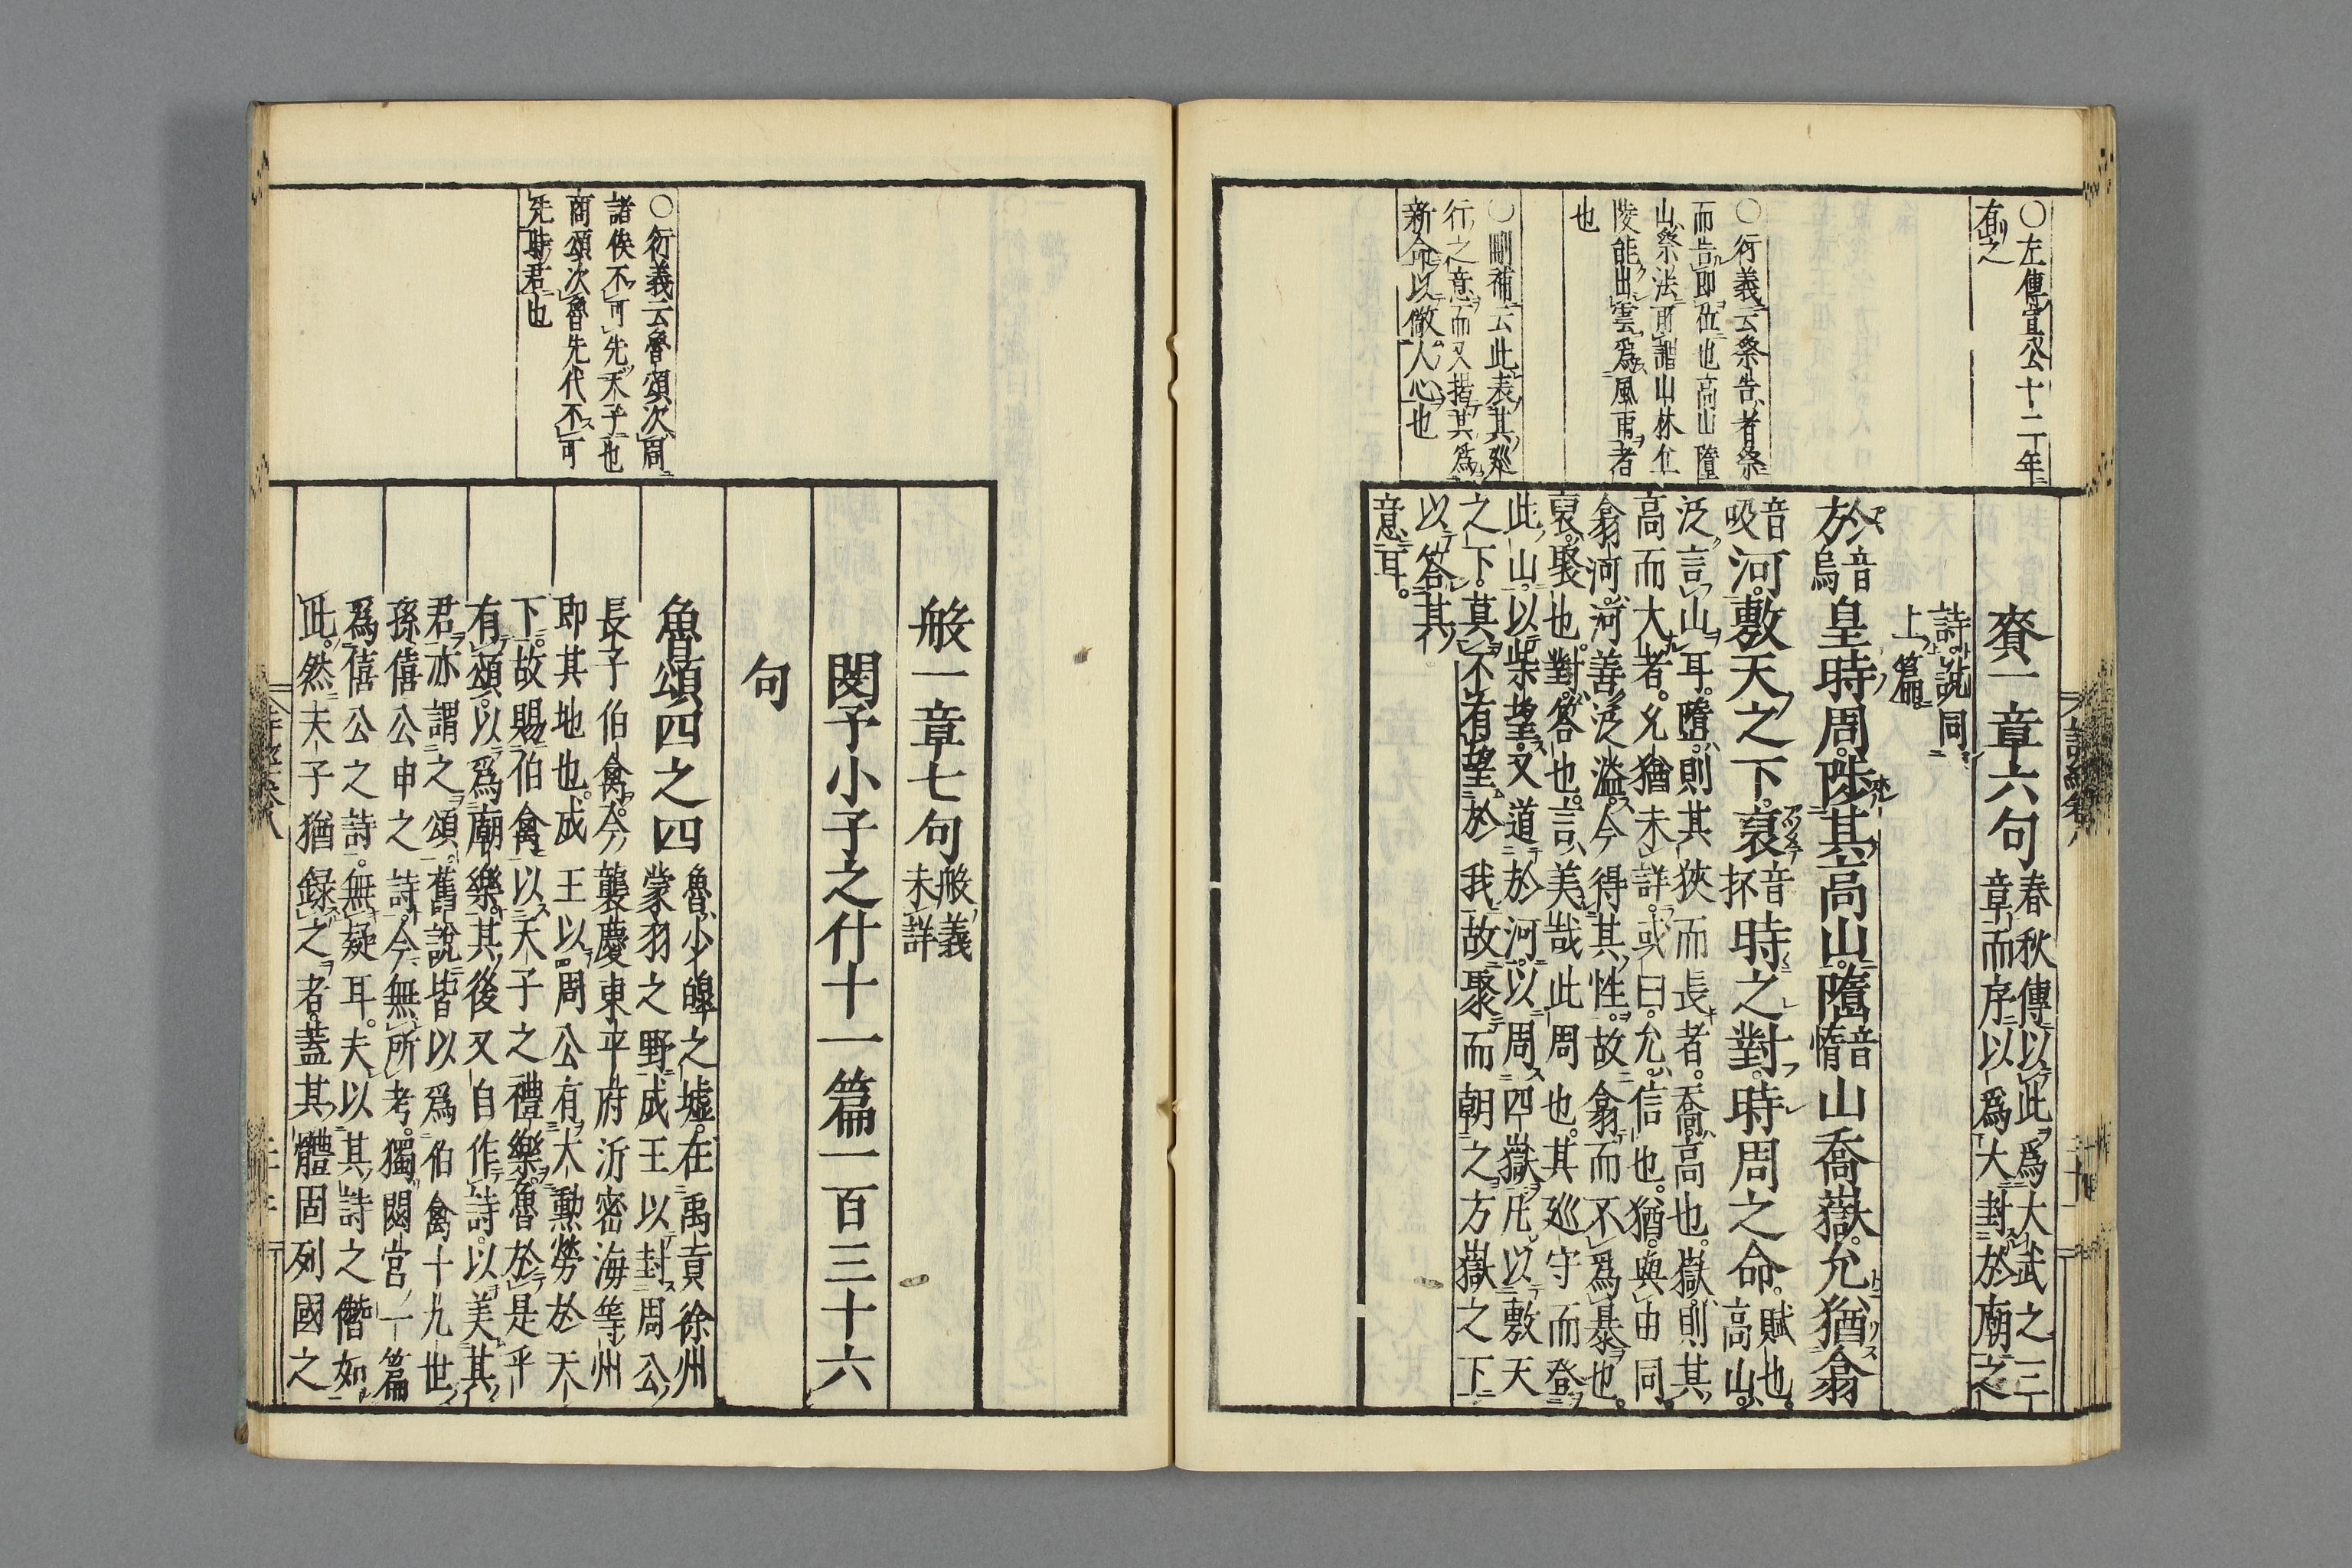 ○左傳宣公十二年
有之
○衍義云祭告者祭
而告即位也高山墮
山祭法所謂山林丘
陵能出雲爲風雨者
也
○刪補云此表其廵
行之意而又揩其爲
新命以儆人心也
賚一章六句春秋傳以此爲大武之三
章而序以爲大封於廟之
詩說同
上篇
於音烏皇時周陟其高山隋音惰山喬嶽允猶翕
音吸河敷天之下裒音抔時之對時周之命賦也。高山。
泛言山耳。隋。則其狹而長者。喬。高也。嶽。則其
高而大者。允猶未詳。或曰。允。信也。猶。與由同。
翕河。河善泛溢。今得其性。故翕而不爲暴也。
裒。聚也。對。答也。言美哉此周也。其廵守而登
此山。以柴望。又道於河。以周四嶽。凡以敷天
之下。莫不有望於我。故聚而朝之方嶽之下
以答其
意耳。
○衍義云魯頌次周
諸侯不可先天子也
商頌次魯先代不可
先時君也
般一章七句般義
未詳
閔予小子之什十一篇一百三十六
句
魯頌四之四魯少皞之墟。在禹貢徐州
蒙羽之野成王以封周公
長子伯禽。今襲慶東平府沂密海等州
即其地也。成王以周公有大勲勞於天
下。故賜伯禽以天子之禮樂。魯於是乎
有頌。以爲廟樂。其後又自作詩。以美其
君。亦謂之頌。舊說皆以爲伯禽十九世
孫僖公申之詩。今無所考。獨閟宮一篇
爲僖公之詩。無疑耳。夫以其詩之僭如
此。然夫子猶録之者。蓋其體固列國之